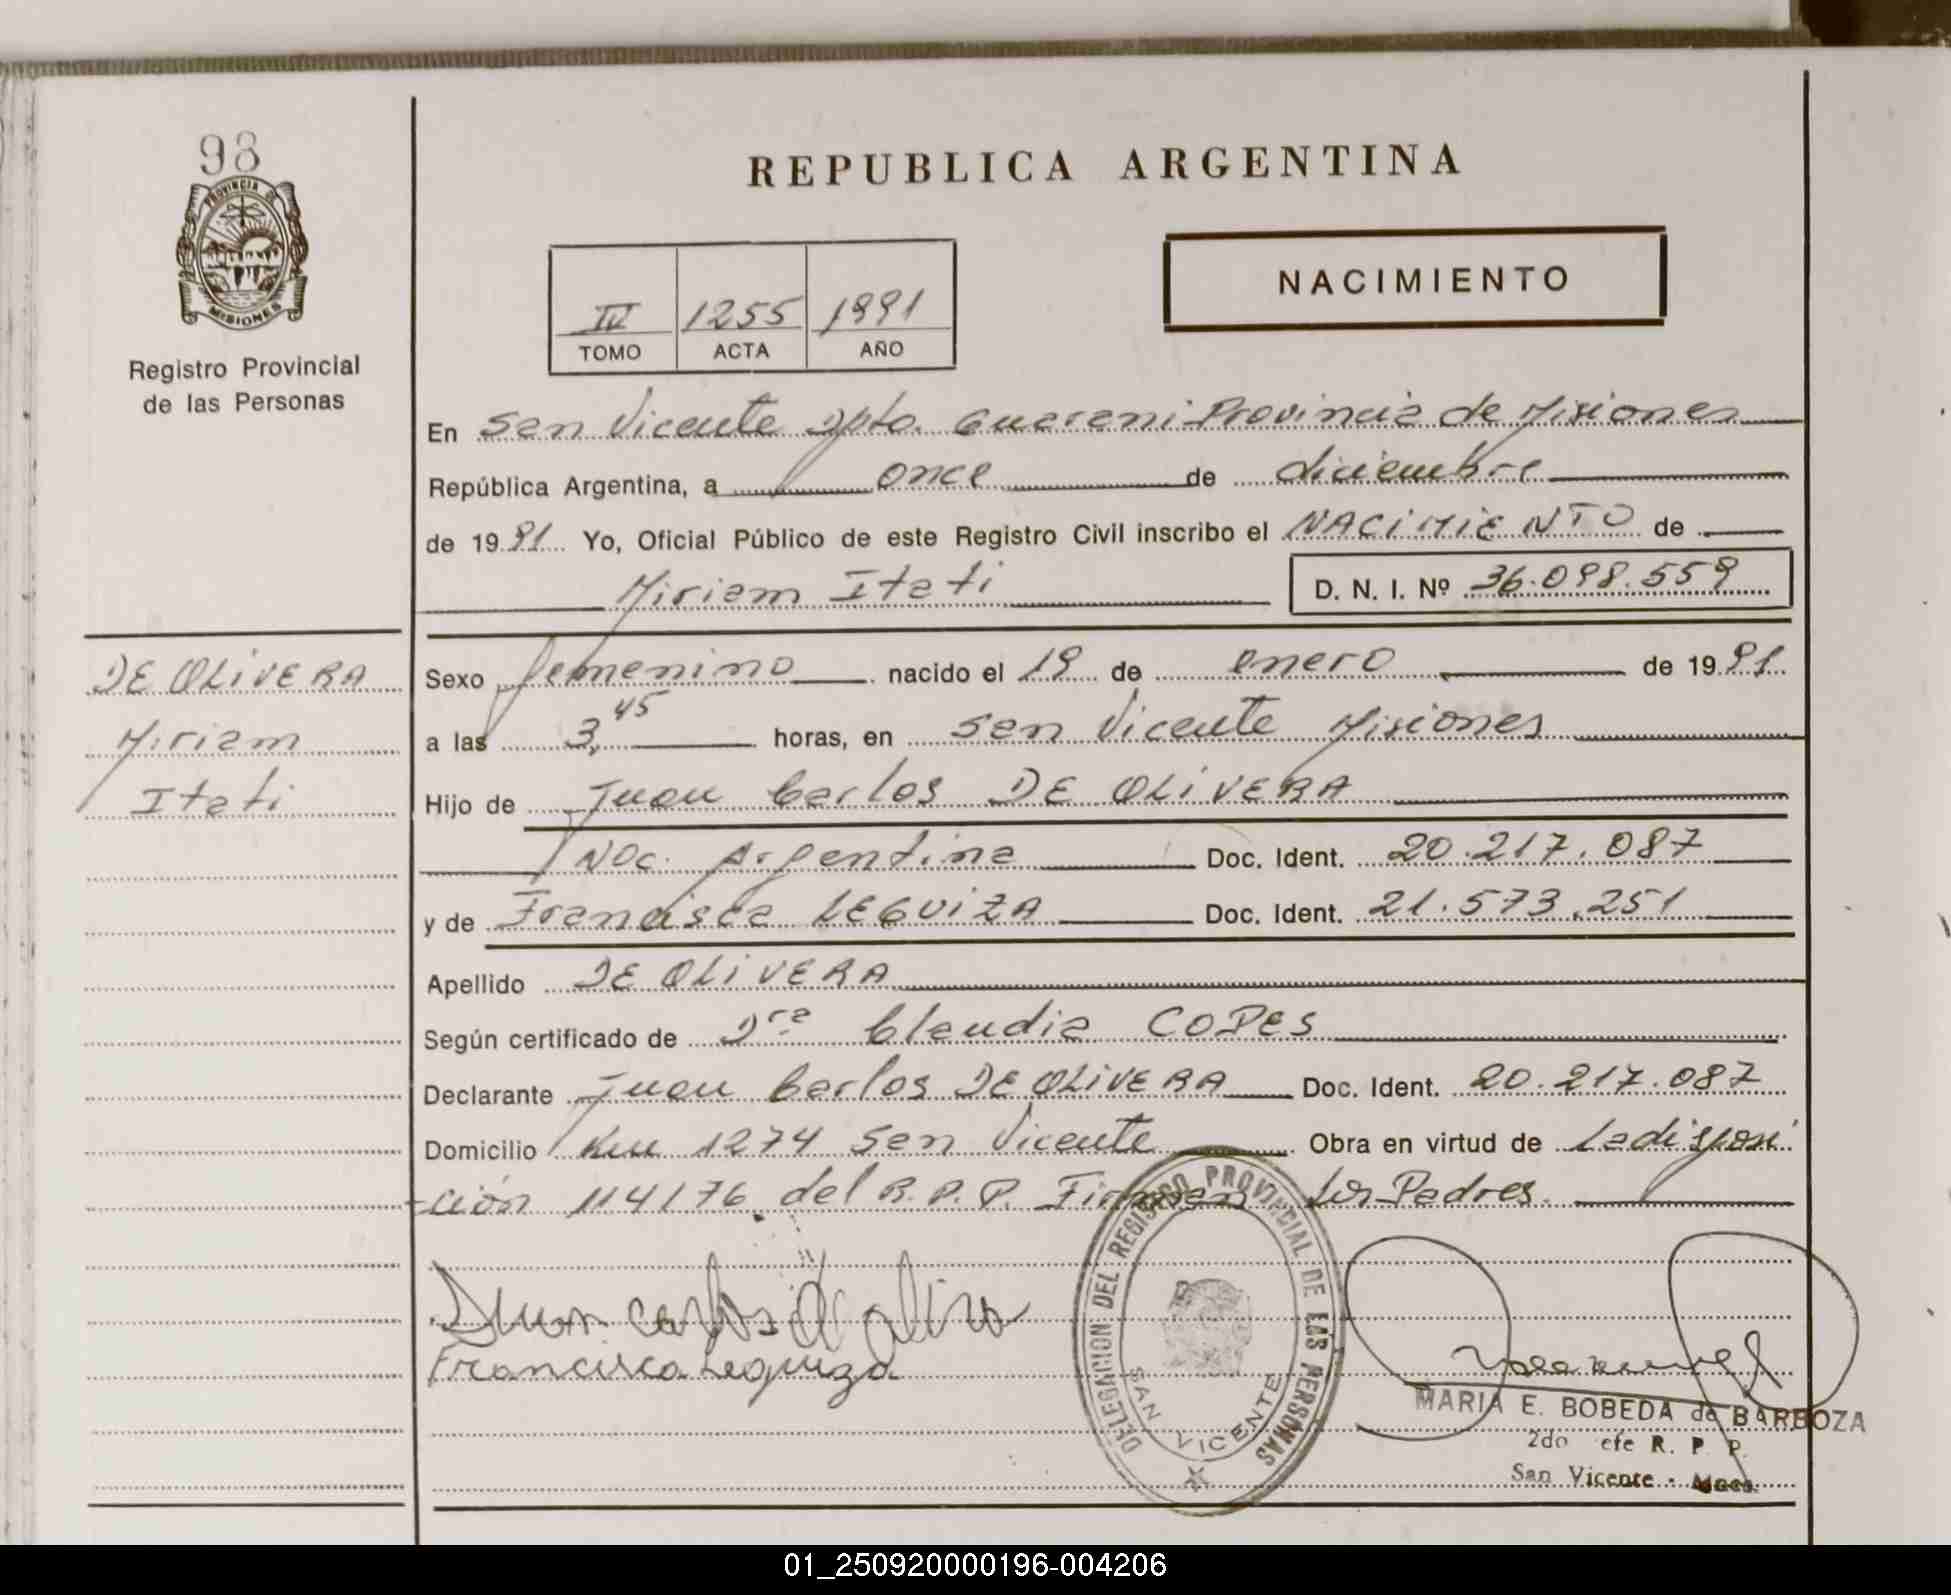 98
PROVINCIA DE
MISIONES
Registro Provincial
de las Personas
REPUBLICA ARGENTINA
IV 1255 1991
TOMO ACTA AÑO
NACIMIENTO
En San Vicente Dpto. Guarani Provincia de Misiones
República Argentina, a once de diciembre
de 1991 Yo, Oficial Público de este Registro Civil inscribo el NACIMIENTO de
Miriam Itati D. N. I. Nº 36.098.559
DE OLIVERA
Miriam
Itati
Sexo femenino nacido el 19 de enero de 1991
a las 3,45 horas, en San Vicente Misiones
Hijo de Juan Carlos DE OLIVERA
Nac. Argentina Doc. Ident. 20.217.087
y de Francisca LEGUIZA Doc. Ident. 21.573.251
Apellido DE OLIVERA
Según certificado de Dra Claudia COPES
Declarante Juan Carlos DE OLIVERA Doc. Ident. 20.217.087
Domicilio Km 1274 San Vicente Obra en virtud de La disposi
ción 114/76 del R.P.P. Firman Los Padres.
Juan Carlos De Oliveira
Francisca Leguiza
DELEGACION DEL REGISTRO PROVINCIAL DE LAS PERSONAS
SAN VICENTE
MARIA E. BOBEDA de BARBOZA
2do efe R. P. P.
San Vicente - Mnes.
01_250920000196-004206